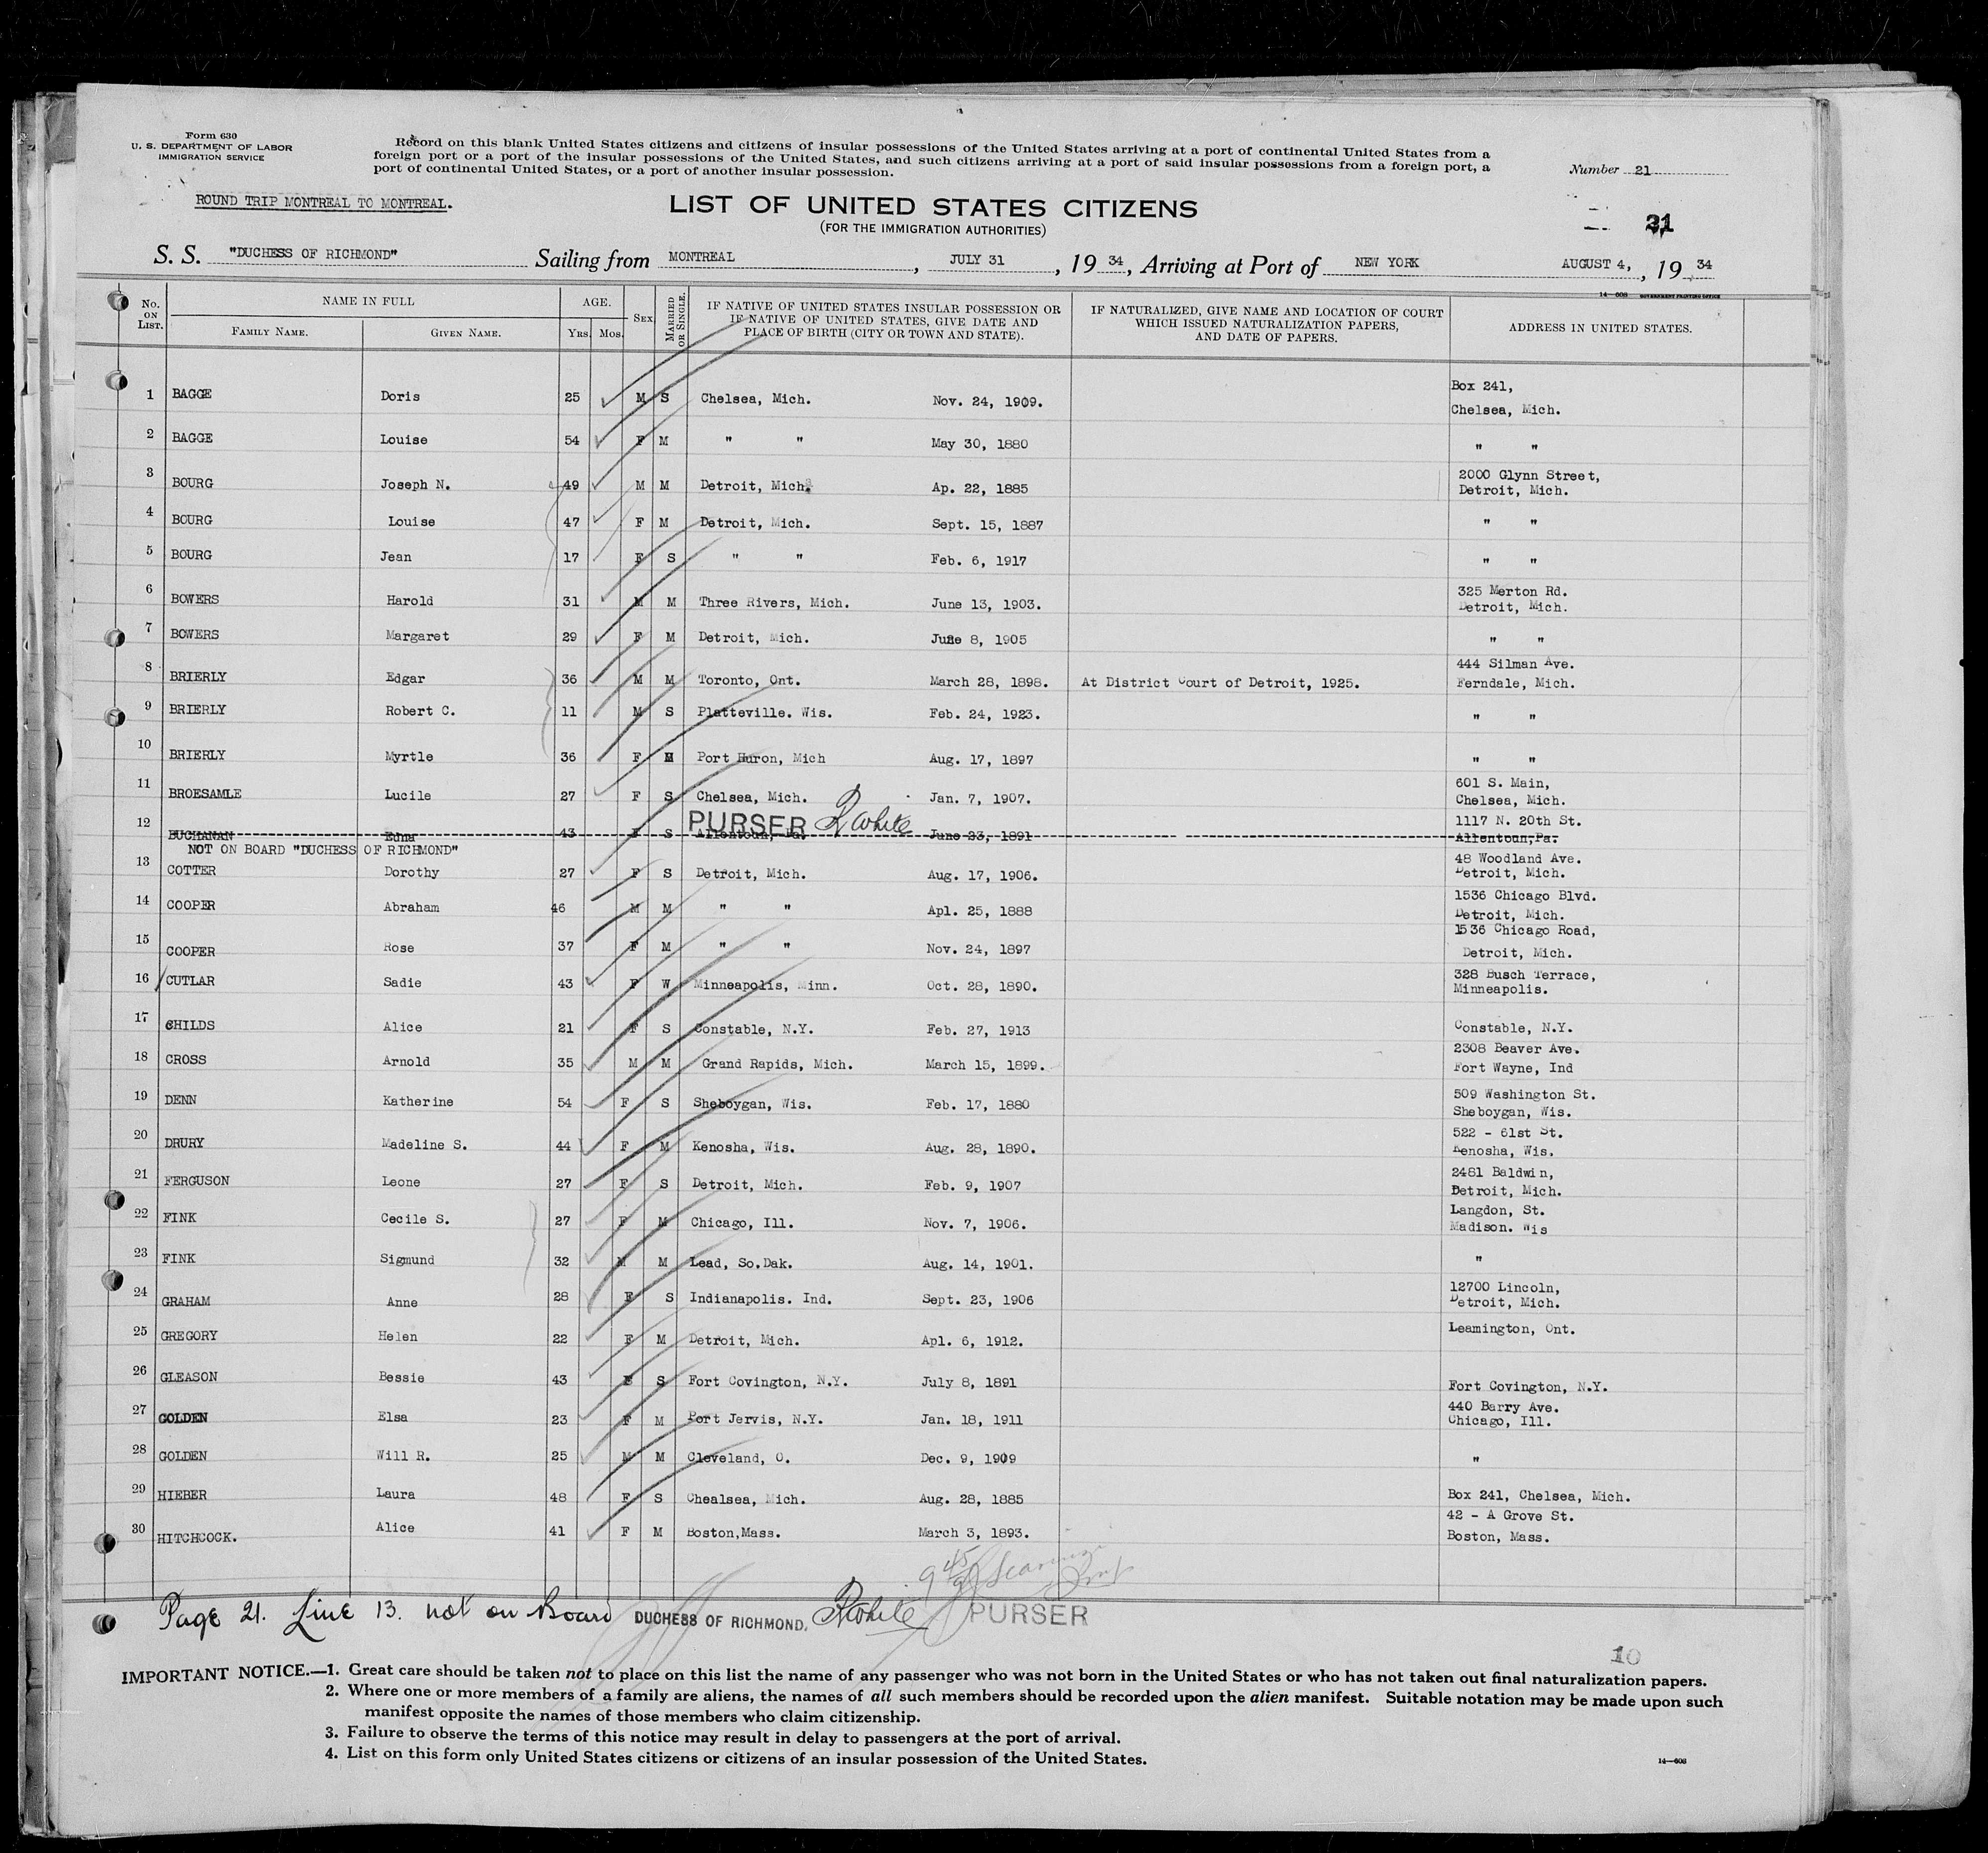 Form 630
U. S. DEPARTMENT OF LABOR
IMMIGRATION SERVICE
Record on this blank United States citizens and citizens of insular possessions of the United States arriving at a port of continental United States from a
foreign port or a port of the insular possessions of the United States, and such citizens arriving at a port of said insular possessions from a foreign port, a
port of continental United States, or a port of another insular possession.
Number 21
ROUND TRIP MONTREAL TO MONTREAL.
LIST OF UNITED STATES CITIZENS
(FOR THE IMMIGRATION AUTHORITIES)
21
S. S. "DUCHESS OF RICHMOND" Sailing from MONTREAL, JULY 31, 19 34, Arriving at Port of NEW YORK AUGUST 4, , 19 34
14—608 GOVERNMENT PRINTING OFFICE
No. ON LIST. NAME IN FULL FAMILY NAME. GIVEN NAME. AGE. Yrs. Mos. SEX MARRIED OR SINGLE. IF NATIVE OF UNITED STATES INSULAR POSSESSION OR IF NATIVE OF UNITED STATES, GIVE DATE AND PLACE OF BIRTH (CITY OR TOWN AND STATE). IF NATURALIZED, GIVE NAME AND LOCATION OF COURT WHICH ISSUED NATURALIZATION PAPERS, AND DATE OF PAPERS. ADDRESS IN UNITED STATES.
1 BAGGE Doris 25 M S Chelsea, Mich. Nov. 24, 1909. Box 241, Chelsea, Mich.
2 BAGGE Louise 54 F M " " May 30, 1880 " "
3 BOURG Joseph N. 49 M M Detroit, Mich. Ap. 22, 1885 2000 Glynn Street, Detroit, Mich.
4 BOURG Louise 47 F M Detroit, Mich. Sept. 15, 1887 " "
5 BOURG Jean 17 F S " " Feb. 6, 1917 " "
6 BOWERS Harold 31 M M Three Rivers, Mich. June 13, 1903. 325 Merton Rd. Detroit, Mich.
7 BOWERS Margaret 29 F M Detroit, Mich. June 8, 1905 " "
8 BRIERLY Edgar 36 M M Toronto, Ont. March 28, 1898. At District Court of Detroit, 1925. 444 Silman Ave. Ferndale, Mich.
9 BRIERLY Robert C. 11 M S Platteville. Wis. Feb. 24, 1923. " "
10 BRIERLY Myrtle 36 F M Port Huron, Mich Aug. 17, 1897 " "
11 BROESAMLE Lucile 27 F S Chelsea, Mich. Jan. 7, 1907. 601 S. Main, Chelsea, Mich.
12 BUCHANAN Edna 43 F S Allentoun, Pa. June 23, 1891 1117 N. 20th St. Allentoun, Pa.
PURSER R White
NOT ON BOARD "DUCHESS OF RICHMOND"
13 COTTER Dorothy 27 F S Detroit, Mich. Aug. 17, 1906. 48 Woodland Ave. Detroit, Mich.
14 COOPER Abraham 46 M M " " Apl. 25, 1888 1536 Chicago Blvd. Detroit, Mich.
15 COOPER Rose 37 F M " " Nov. 24, 1897 1536 Chicago Road, Detroit, Mich.
16 CUTLAR Sadie 43 F W Minneapolis, Minn. Oct. 28, 1890. 328 Busch Terrace, Minneapolis.
17 CHILDS Alice 21 F S Constable, N.Y. Feb. 27, 1913 Constable, N.Y.
18 CROSS Arnold 35 M M Grand Rapids, Mich. March 15, 1899. 2308 Beaver Ave. Fort Wayne, Ind
19 DENN Katherine 54 F S Sheboygan, Wis. Feb. 17, 1880 509 Washington St. Sheboygan, Wis.
20 DRURY Madeline S. 44 F M Kenosha, Wis. Aug. 28, 1890. 522 - 61st St. Kenosha, Wis.
21 FERGUSON Leone 27 F S Detroit, Mich. Feb. 9, 1907 2481 Baldwin, Detroit, Mich.
22 FINK Cecile S. 27 F M Chicago, Ill. Nov. 7, 1906. Langdon, St. Madison. Wis
23 FINK Sigmund 32 M M Lead, So.Dak. Aug. 14, 1901. "
24 GRAHAM Anne 28 F S Indianapolis. Ind. Sept. 23, 1906 12700 Lincoln, Detroit, Mich.
25 GREGORY Helen 22 F M Detroit, Mich. Apl. 6, 1912. Leamington, Ont.
26 GLEASON Bessie 43 F S Fort Covington, N.Y. July 8, 1891 Fort Covington, N.Y.
27 GOLDEN Elsa 23 F M Port Jervis, N.Y. Jan. 18, 1911 440 Barry Ave. Chicago, Ill.
28 GOLDEN Will R. 25 M M Cleveland, O. Dec. 9, 1909 "
29 HIEBER Laura 48 F S Chealsea, Mich. Aug. 28, 1885 Box 241, Chelsea, Mich.
30 HITCHCOCK. Alice 41 F M Boston,Mass. March 3, 1893. 42 - A Grove St. Boston, Mass.
Page 21. Line 13. not on Board DUCHESS OF RICHMOND, R White PURSER
10
IMPORTANT NOTICE.—1. Great care should be taken not to place on this list the name of any passenger who was not born in the United States or who has not taken out final naturalization papers.
2. Where one or more members of a family are aliens, the names of all such members should be recorded upon the alien manifest. Suitable notation may be made upon such
manifest opposite the names of those members who claim citizenship.
3. Failure to observe the terms of this notice may result in delay to passengers at the port of arrival.
4. List on this form only United States citizens or citizens of an insular possession of the United States.
14—608